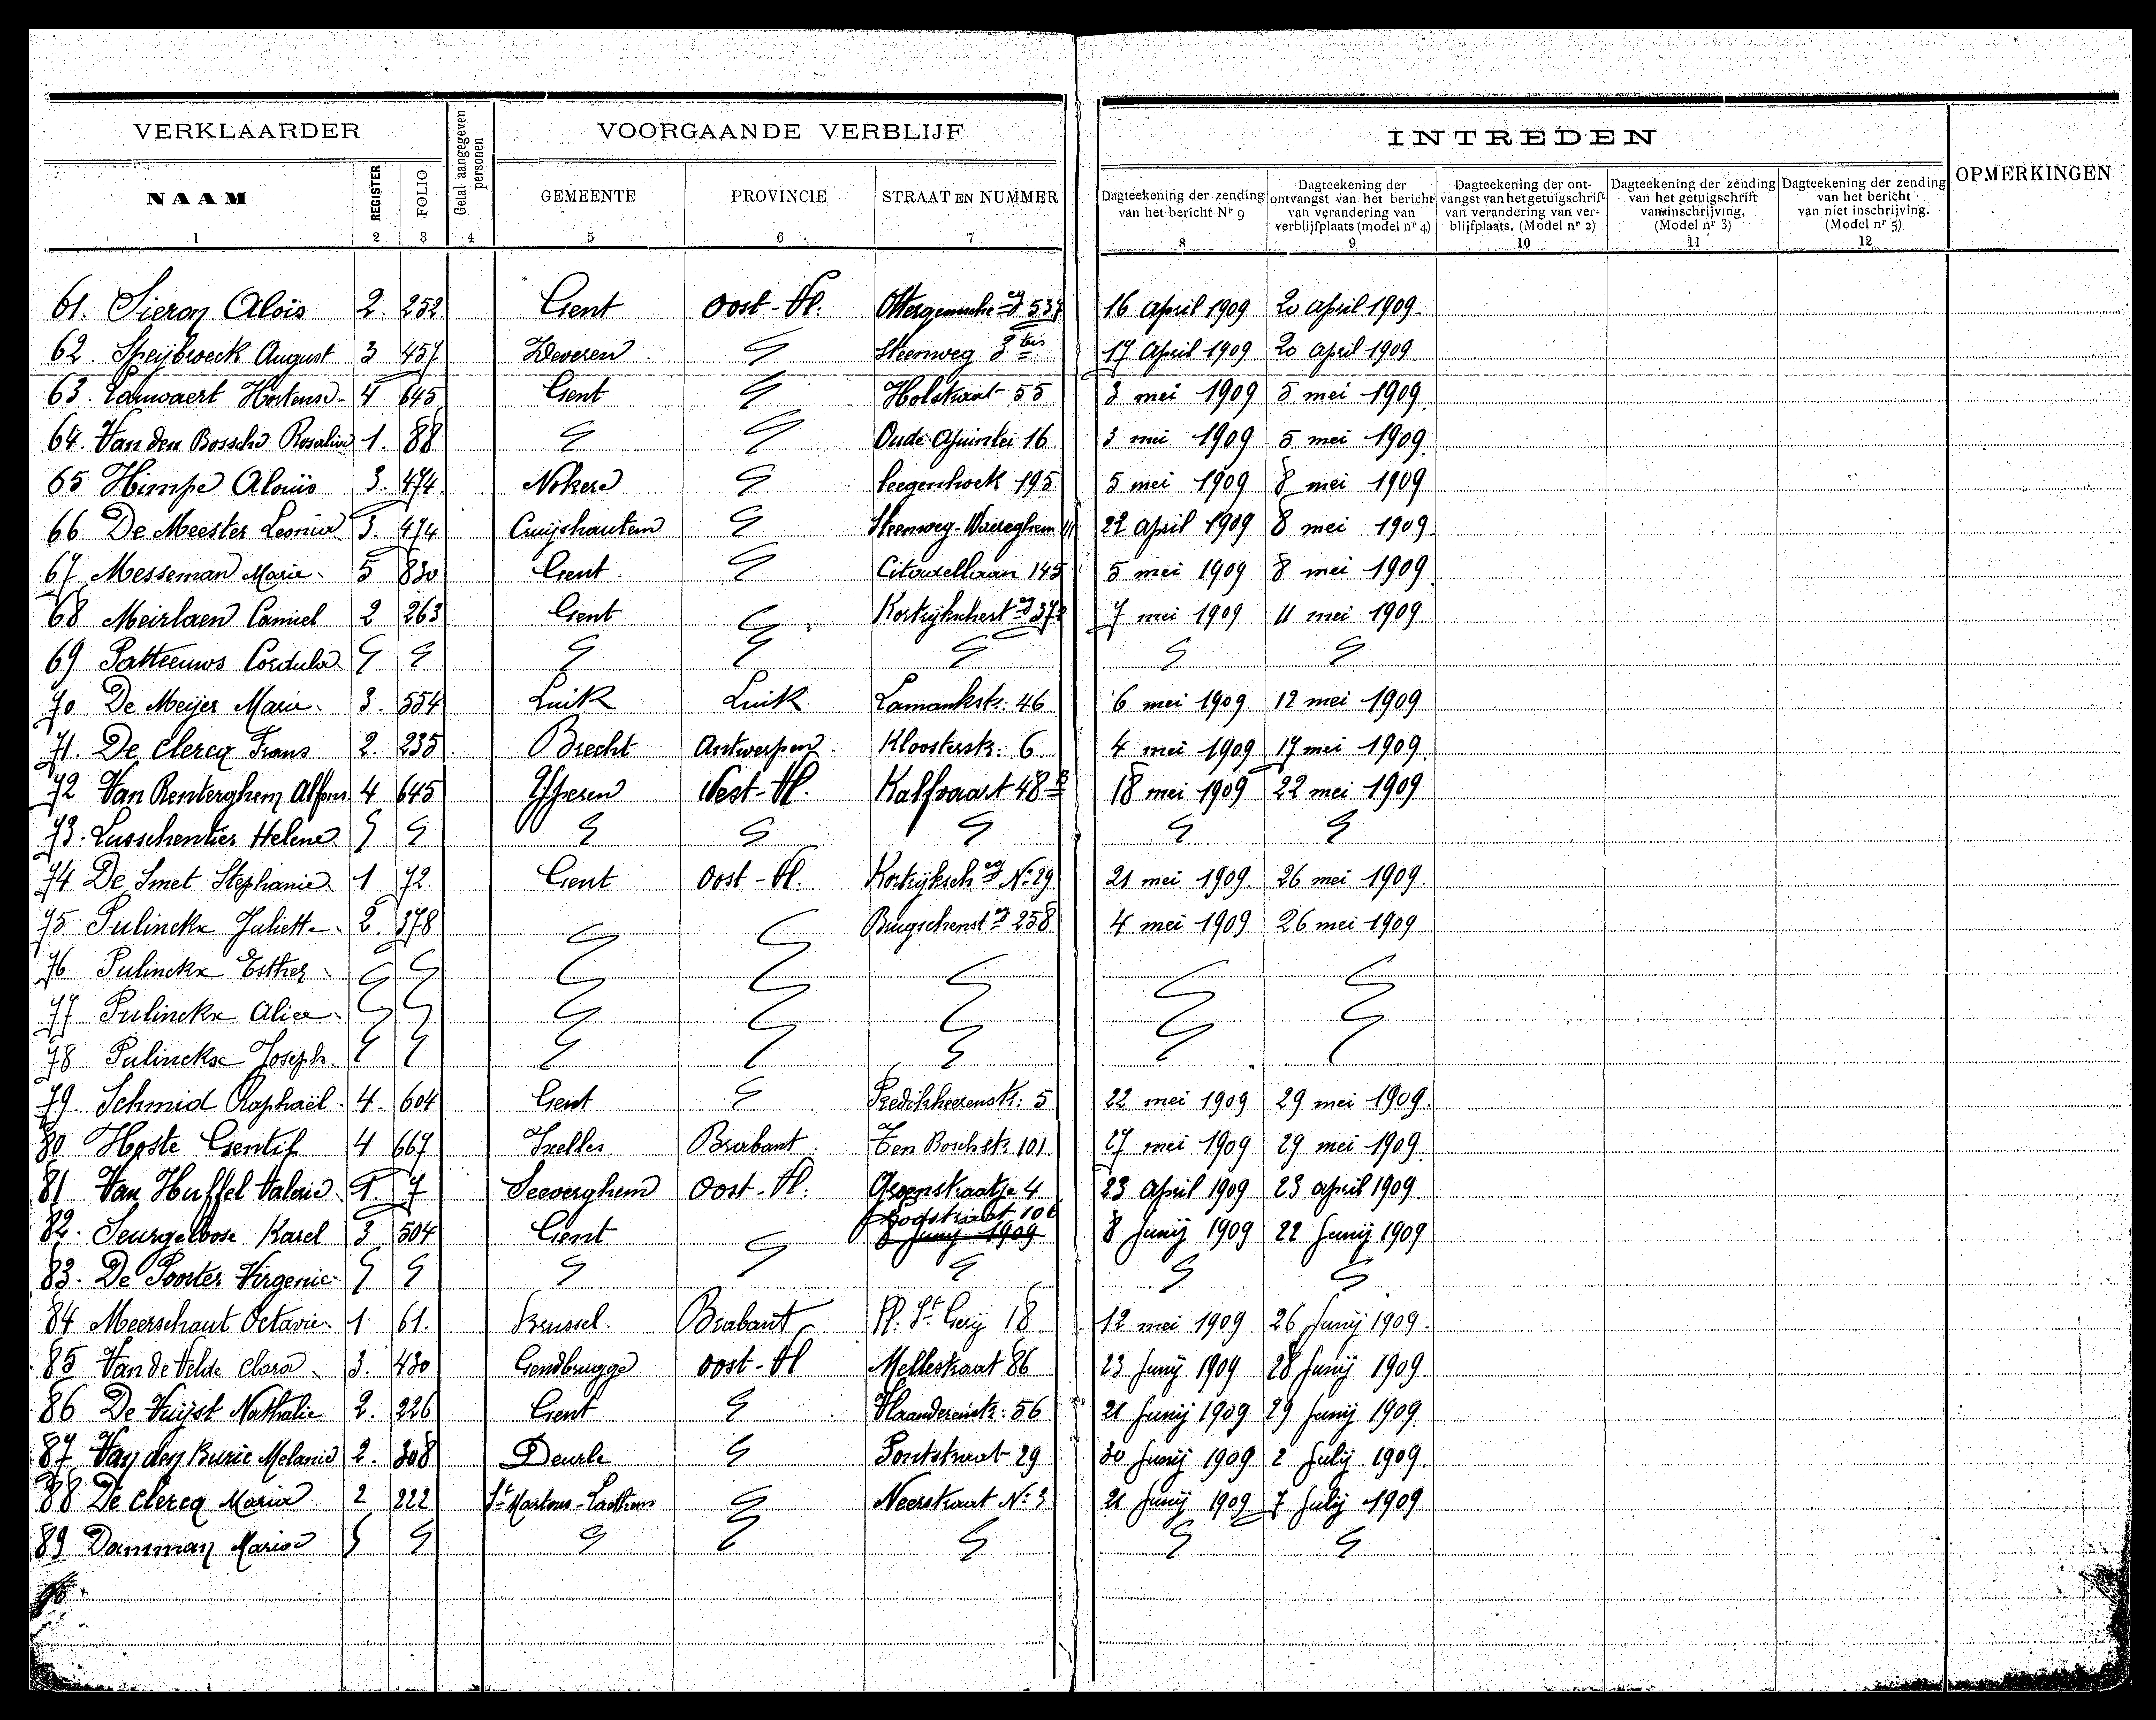 VERKLAARDER
Getal aangegeven personen
VOORGAANDE VERBLIJF
INTREDEN
OPMERKINGEN
NAAM REGISTER FOLIO GEMEENTE PROVINCIE STRAAT EN NUMMER
Dagteekening der zending van het bericht Nr 9
Dagteekening der ontvangst van het bericht van verandering van verblijfplaats (model nr 4)
Dagteekening der ontvangst van het getuigschrift van verandering van verblijfplaats. (Model nr 2)
Dagteekening der zending van het getuigschrift van inschrijving. (Model nr 3)
Dagteekening der zending van het bericht van niet inschrijving. (Model nr 5)
1 2 3 4 5 6 7 8 9 10 11 12
61. Sieron Aloïs 2. 252 Gent Oost-Vl. 537 16 April 1909 20 April 1909.
62. Speijbroeck August 3 457 Zeveren " Steenweg 3 bis 17 April 1909 20 April 1909
63. Lauwaert Hortense 4 645 Gent " Holstraat 55 3 mei 1909 5 mei 1909.
64. Van den Bossche Rosalie 1. 88 " " Oude Ajuinlei 16 3 mei 1909 5 mei 1909.
65 Himpe Aloüis 3. 474 Nokere " Leegenhoek 195 5 mei 1909 8 mei 1909
66 De Meester Leonie 3. 474 Cruijshautem " Steenweg-Waereghem 22 April 1909 8 mei 1909
67 Messeman Marie 5 830 Gent. " 145 5 mei 1909 8 mei 1909
68 Meirlaen Camiel 2 263 Gent " 7 mei 1909 11 mei 1909
69 Patteeuws Cordula " " " " " " "
70 De Meijer Marie 3. 554 Luik Luik 46 6 mei 1909 12 mei 1909
71. De Clercq Frans 2. 235 Brecht Antwerpen. Kloosterstr: 6 4 mei 1909 17 mei 1909.
72 Van Renterghem Alfons 4 645 Yperen West-Vl. Kalfvaart 48 18 mei 1909 22 mei 1909
73. Lusschentier Helene " " " " " " "
74 De Smet Stephanie 1 72. Gent Oost-Vl. Kortrijksch N° 29 21 mei 1909. 26 mei 1909.
75 Pulinckx Juliette 2. 378 " " 258 4 mei 1909 26 mei 1909
76 Pulinckx Esther " " " " " " "
77 Pulinckx Alice " " " " " " "
78 Pulinckx Joseph " " " " " " "
79. Schmid Raphaël 4. 604 Gent " Predikheerenstr: 5 22 mei 1909 29 mei 1909.
80 Hoste Gentil 4 667 Ixelles Brabant Ten Boschstr. 101 27 mei 1909 29 mei 1909.
81 Van Huffel Valerie 1. 7 Seeverghem Oost-Vl: Groenstraatje 4 23 April 1909 23 april 1909.
82. Seurgeloose Karel 3 504 Gent " 8 Junij 1909 8 Junij 1909 22 Junij 1909
83. De Poorter Virgenie " " " " " " "
84 Meerschaut Octavie 1 61. Brussel. Brabant Pl. St Gerij 18 12 mei 1909 26 Junij 1909.
85 Van de Velde Clara 3. 430 Gendbrugge Oost-Vl Mellestraat 86 23 Junij 1909 28 Junij 1909.
86 De Vuijst Nathalie 2. 226 Gent " Vlaanderenstr: 56 21 Junij 1909 29 Junij 1909.
87 Van den Burie Melanie 2. 308 Deurle " Pontstraat 29 30 Junij 1909 2 Julij 1909.
88 De Clercq Maria 2 222 St Martens-Lathem " Neerstraat N° 3 21 Junij 1909 7 Julij 1909
89 Damman Marie " " " " " " "
90.